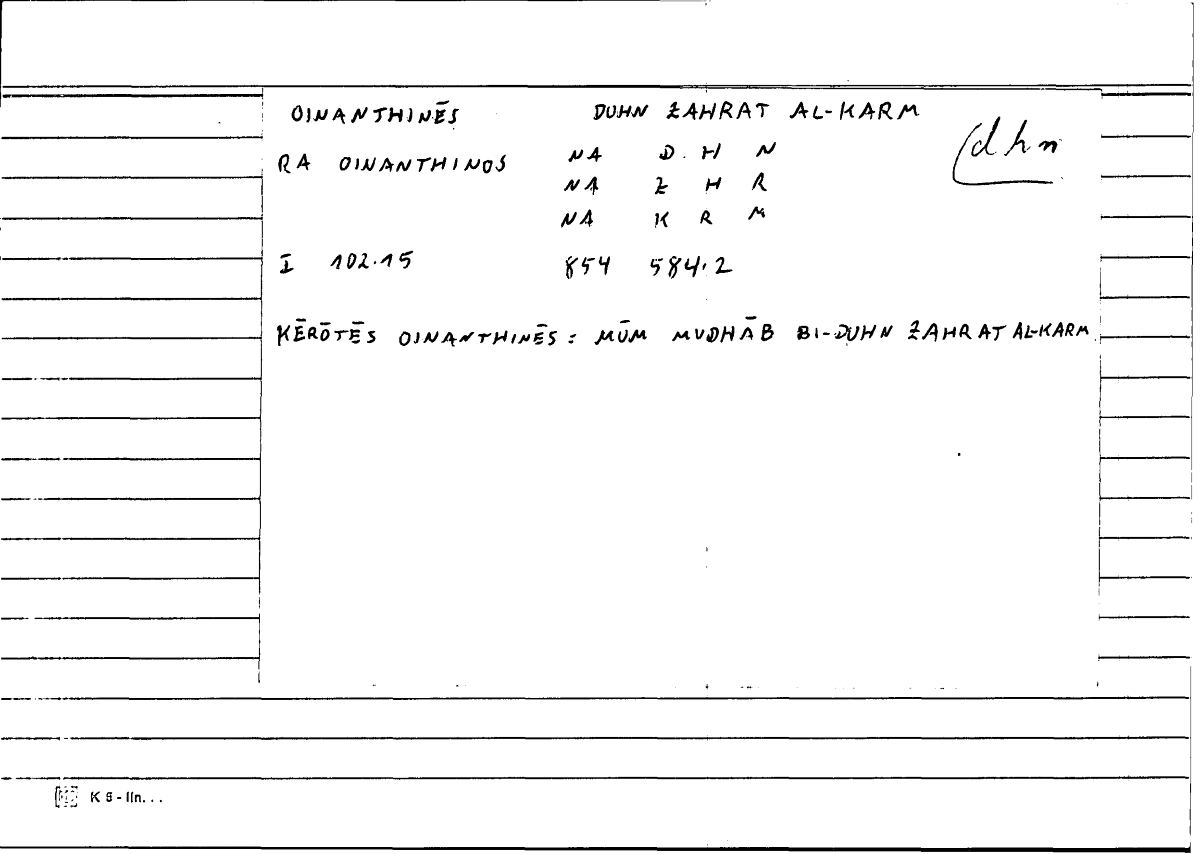 OINANTHINĒS DUHN ZAHRAT AL-KARM
(dhn
RA OINANTHINOS NA D.H N
NA Z H R
NA K R M
I 102.15 854 584.2
KĒRŌTĒS OINANTHINĒS = MŪM MUDHĀB BI-DUHN ZAHRAT AL-KARM
K 6 - lin...